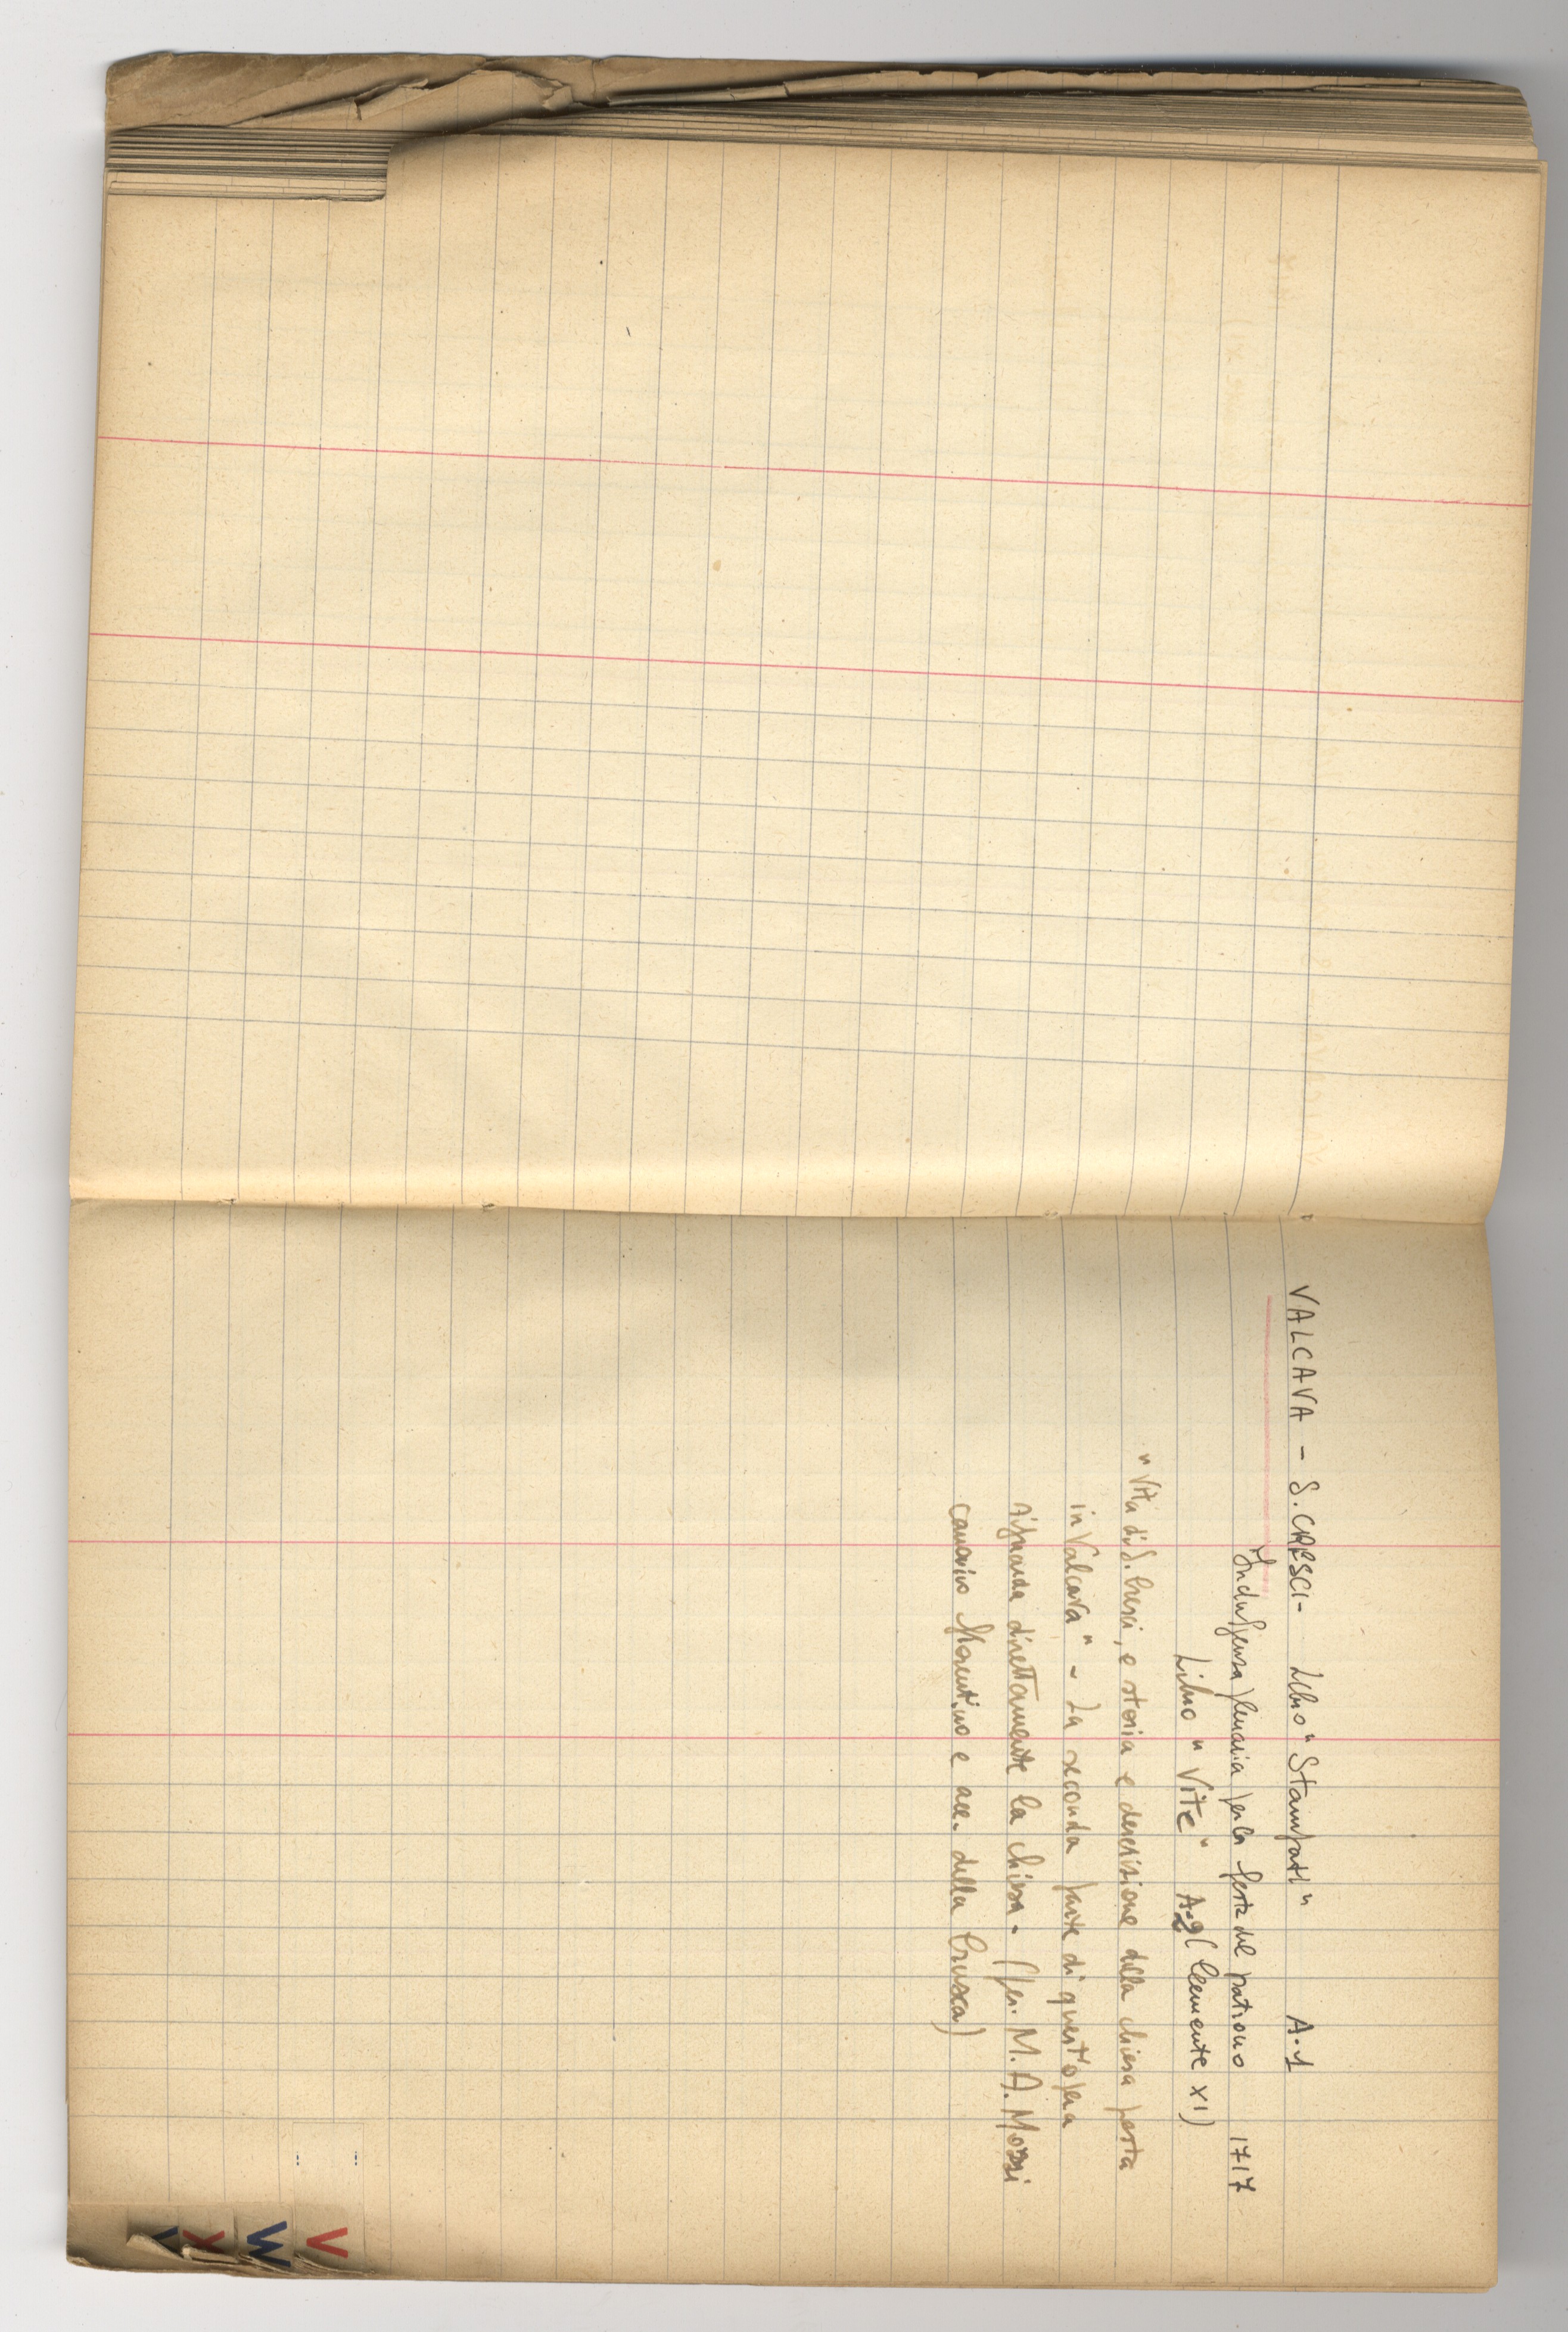 VALCAVA - S. CRESCI - Libro "Stampati" A.1
Indulgenza plenaria per la festa del patrono 1717
Libro "Vite" A.2 (Clemente XI)
"Vita di S. Cresci, e storia e descrizione della chiesa posta
in Valcava" - La seconda parte di quest'opera
riguarda direttamente la chiesa - (per. M. A. Mozzi
canonico fiorentino e acc. della Crusca)
V
W
X